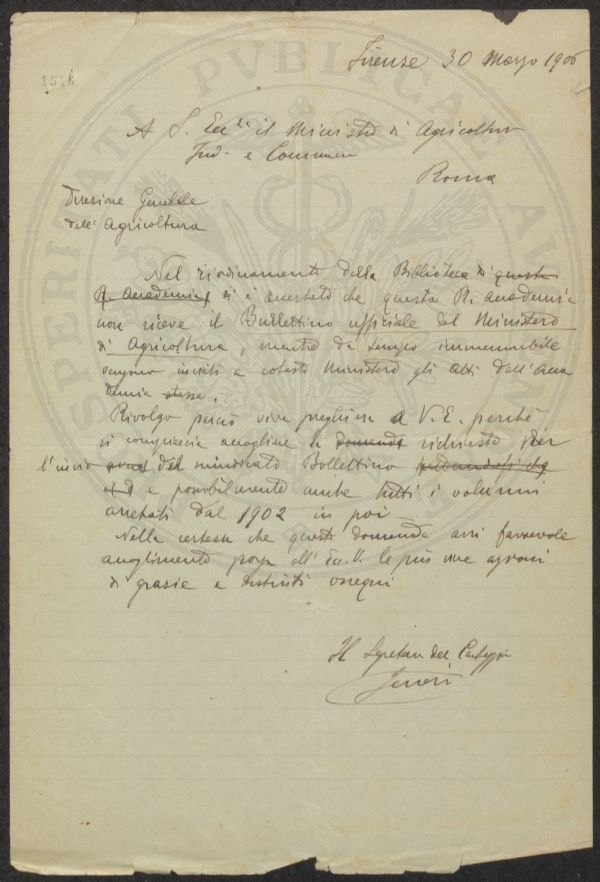 1516
Firenze 30 Marzo 1906
A S. Ecc. il Ministro di Agricoltura
Ind. e Commercio
Roma
Direzione Generale
dell'Agricoltura
Nel riordinamento della Biblioteca di questa
R. Accademia si è accertato che questa R. Accademia
non riceve il Bullettino ufficiale del Ministero
di Agricoltura, mentre da tempo immemorabile
vengono inviati a cotesto Ministero gli atti dell'Acca
demia stessa.
Rivolgo perciò viva preghiera a V. E. perché
si compiaccia accogliere la domanda richiesta per
l'invio del mentovato Bollettino
e possibilmente anche tutti i volumi
arretrati dal 1902 in poi
Nella certezza che questa domanda avrà favorevole
accoglimento porgo all' Ecc. V. le più vive azioni
di grazie e distinti ossequi
Il Segretario del Carteggio
PROSPERITATI PVBLICAE AVGENDAE